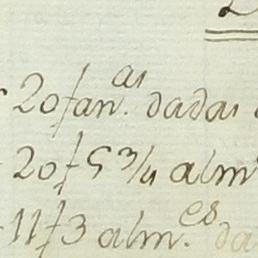 20 fan.as dadas
20 f 5 3/4 alm
11 f 3 alm.es da